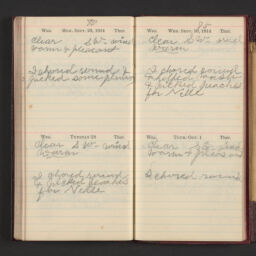 80
Wea. Mon. Sept. 28, 1914 Ther.
Clear S W- wind
warm & pleasant
I chored around &
picked some plums
Wea. Tuesday 29 Ther.
Clear S W- wind
warm
I chored around
& picked peaches
for Nelle
85
Wea. Wed. Sept. 30, 1914 Ther.
Clear S W- wind
warm
I chored around
& picked peaches
for Nelle
Wea. Thur. Oct. 1 Ther.
Clear wind
warm &
I chored around